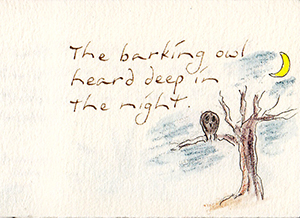 The barking owl
heard deep in
the night.